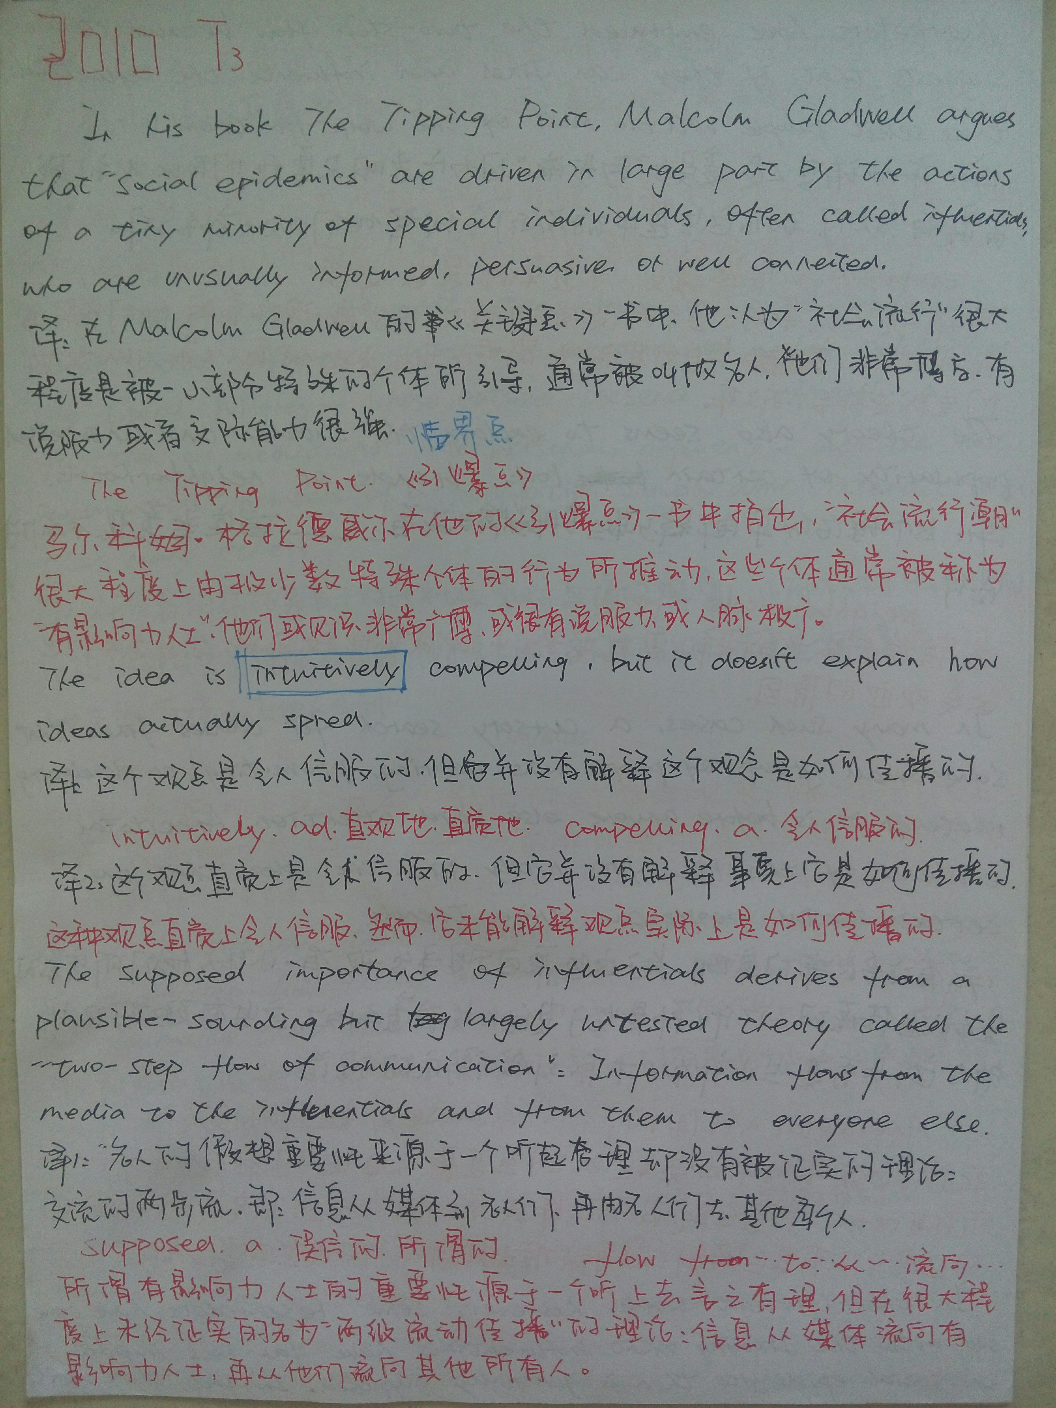 2010 T3
In his book The Tipping Point, Malcolm Gladwell argues
that "social epidemics" are driven in large part by the actions
of a tiny minority of special individuals, often called influentials,
who are unusually informed, persuasive or well connected.
译: 在 Malcolm Gladwell 的《关键点》一书中, 他认为"社会流行"很大
程度是被一小部分特殊的个体所引导, 通常被叫做名人, 他们非常博文, 有
说服力或者交际能力很强.
临界点
The Tipping Point. 《引爆点》
马尔科姆·格拉德威尔在他的《引爆点》一书中指出, "社会流行潮"
很大程度上由极少数特殊个体的行为所推动, 这些个体通常被称为
"有影响力人士", 他们或见识非常广博、或很有说服力、或人脉极广。
The idea is intuitively compelling, but it doesn't explain how
ideas actually spred.
译1: 这个观点是令人信服的, 但它并没有解释这个观念是如何传播的.
intuitively. ad. 直观地. 直觉地. compelling. a. 令人信服的.
译2: 这个观点直觉上是令人信服的, 但它并没有解释事实上它是如何传播的.
这种观点直觉上令人信服, 然而, 它未能解释观点实际上是如何传播的.
The supposed importance of influentials derives from a
plausible-sounding but largely untested theory called the
"two-step flow of communication": Information flows from the
media to the influentials and from them to everyone else.
译1: "名人的假想重要性来源于一个听起有理却没有被证实的理论:
交流的两步流, 即: 信息从媒体到名人们, 再由名人们去其他每个人.
supposed. a. 误信的. 所谓的. flow from … to: 从…流向…
所谓有影响力人士的重要性源于一个听上去言之有理, 但在很大程
度上未经证实的名为"两级流动传播"的理论: 信息从媒体流向有
影响力人士, 再从他们流向其他所有人。